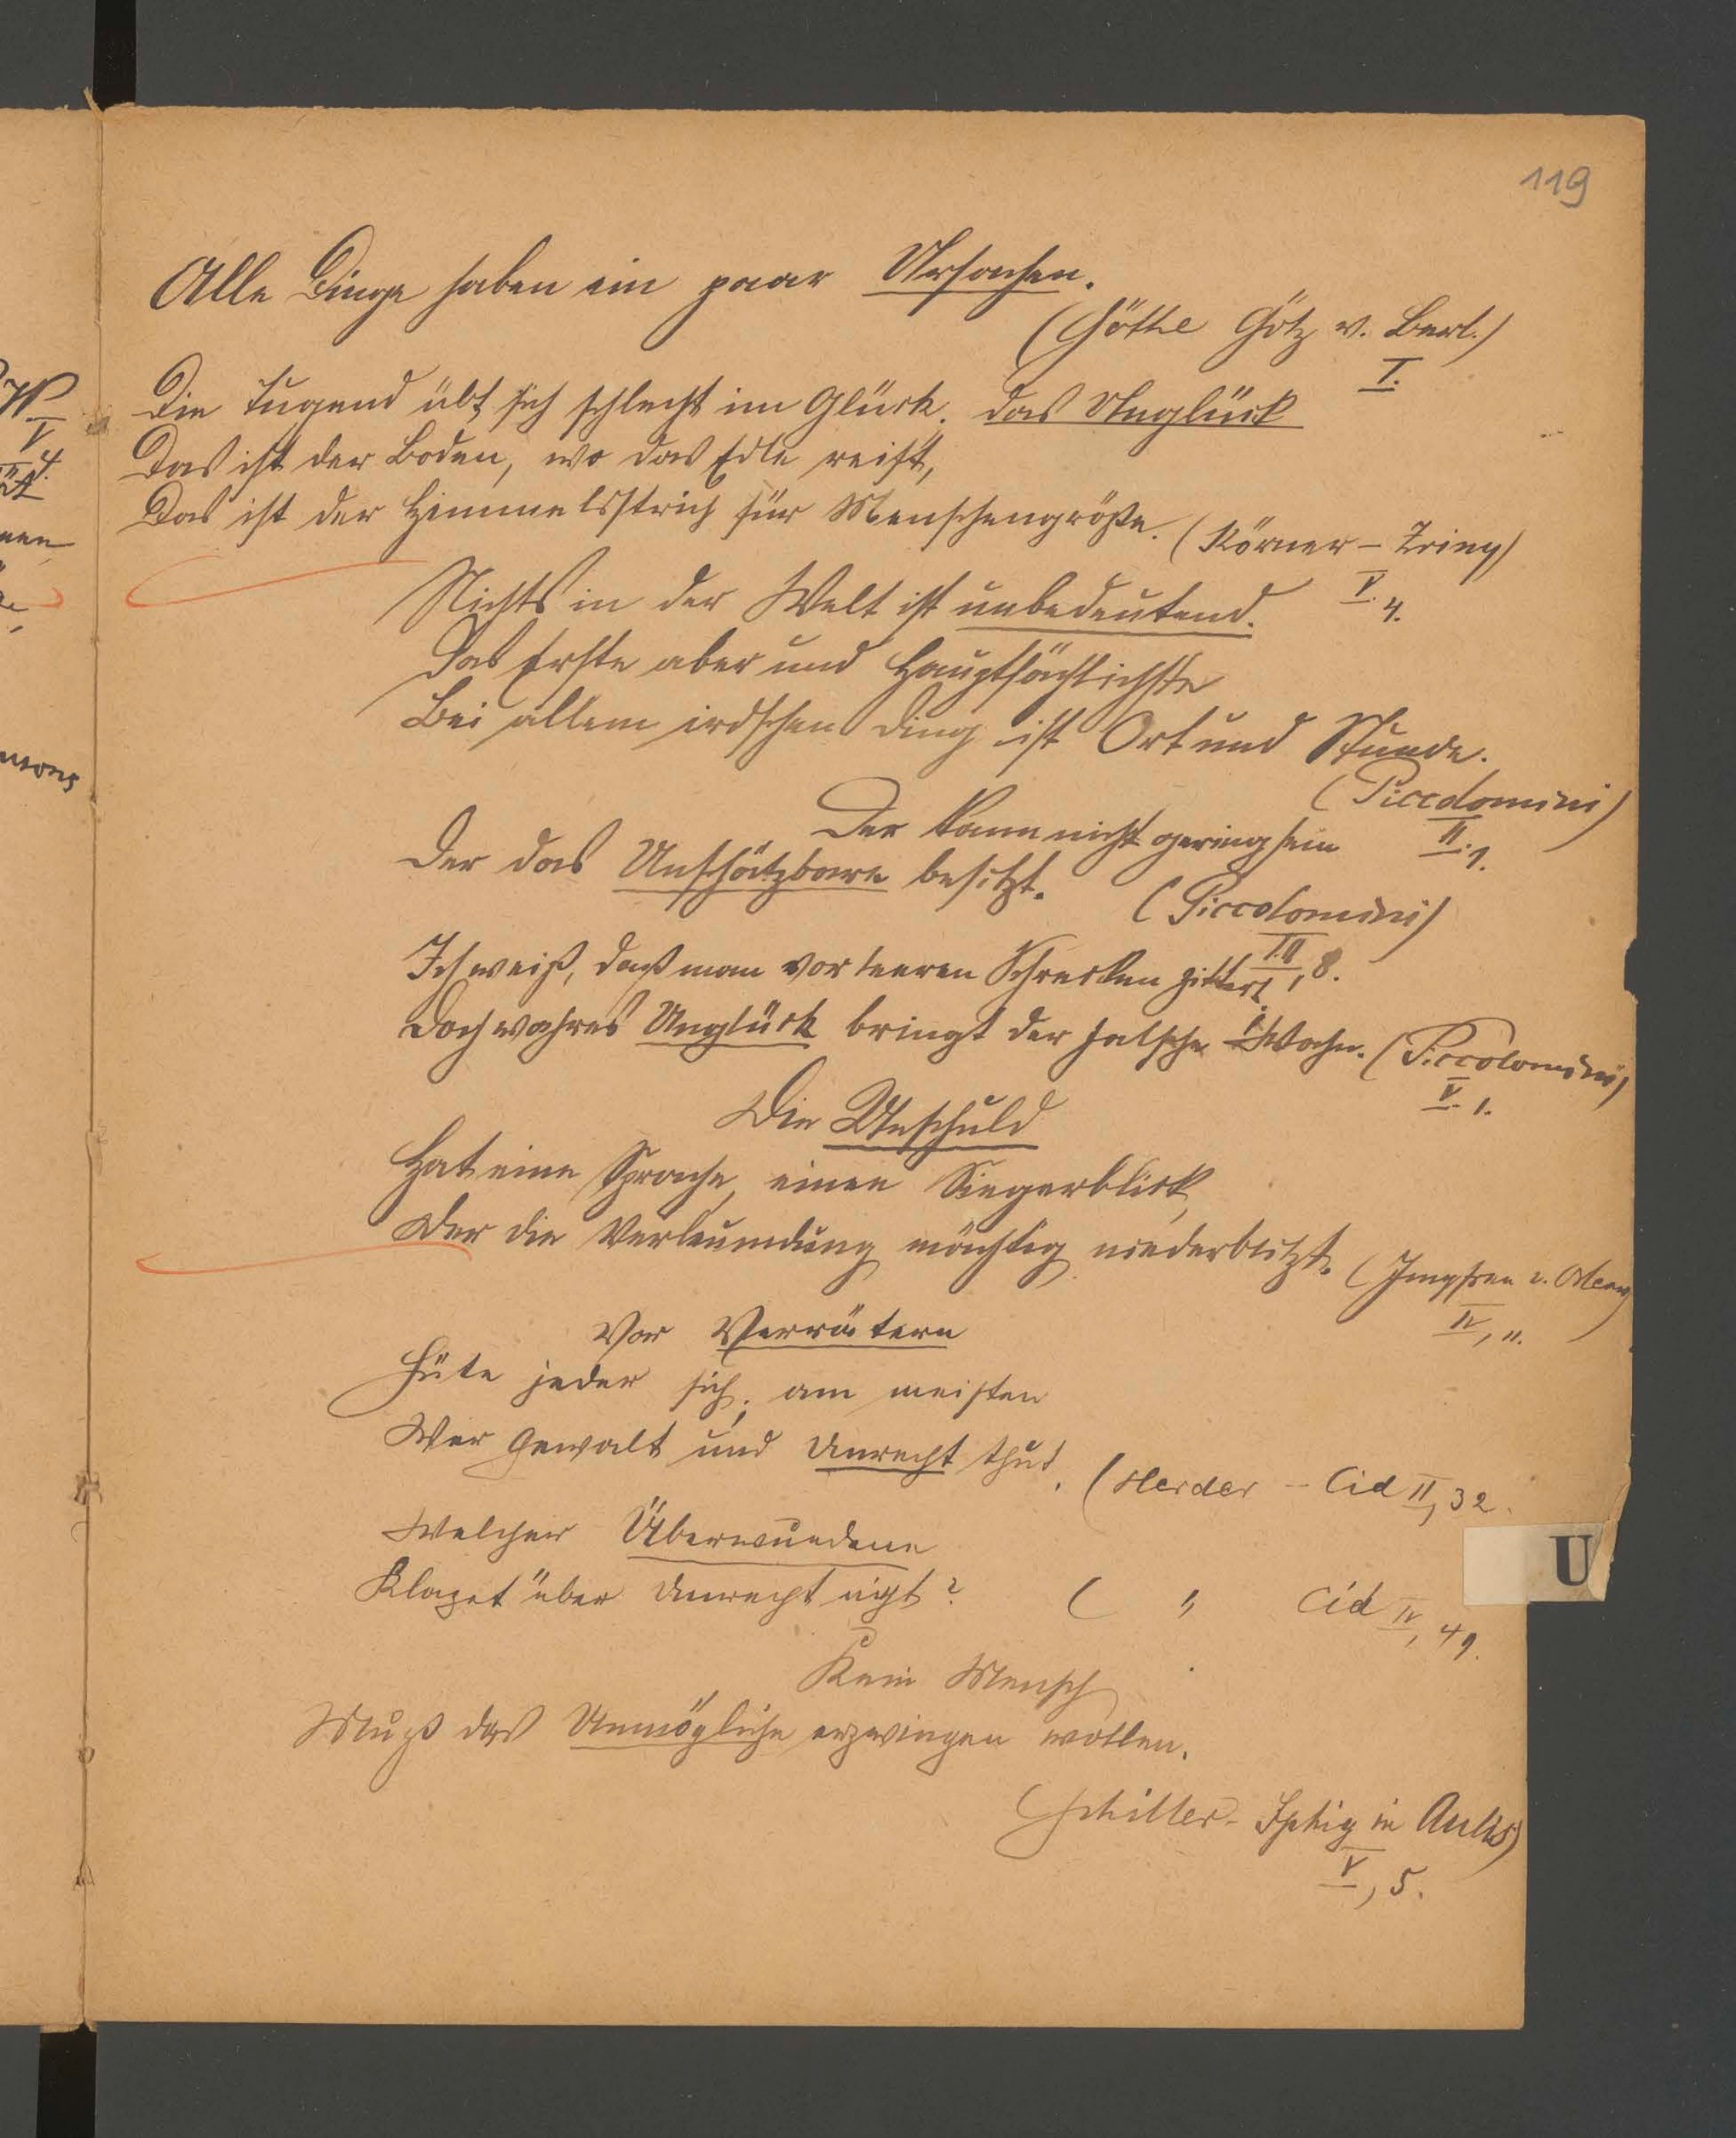 119
Alle Dinge haben ein paar Ursachen.
(Göthe Götz v. Berl.)
I.
Die Tugend übt sich schlecht im Glück. das Unglück
Das ist der Boden, wo das Edle reift,
Das ist der Himmelsstrich für Menschengröße. (Körner – Zriny)
V. 4.
Nichts in der Welt ist unbedeutend.
Das Erste aber und Hauptsächlichste
Bei allem irdschen Ding ist Ort und Stunde.
(Piccolomini)
II. 1.
Der kann nicht gering sein
Der das Unschätzbare besitzt.
(Piccolomini)
III, 8.
Ich weiß, daß man vor leeren Schrecken zittert
Doch wahres Unglück bringt der falsche Wahn. (Piccolomini)
V. 1.
Die Unschuld
Hat eine Sprache, einen Siegerblick,
Der die Verleumdung mächtig niederblitzt. (Jungfrau v. Orlean
IV, 11.
Vor Verrätern
Hüte jeder sich; am meisten
Wer Gewalt und Unrecht thut. (Herder – Cid II, 32.
Welcher Überwundene
Klaget über Unrecht nicht? ( " Cid IV, 49.
Kein Mensch
Muß das Unmögliche erzwingen wollen.
(Schiller – Iphig in Aulis)
V, 5.
U